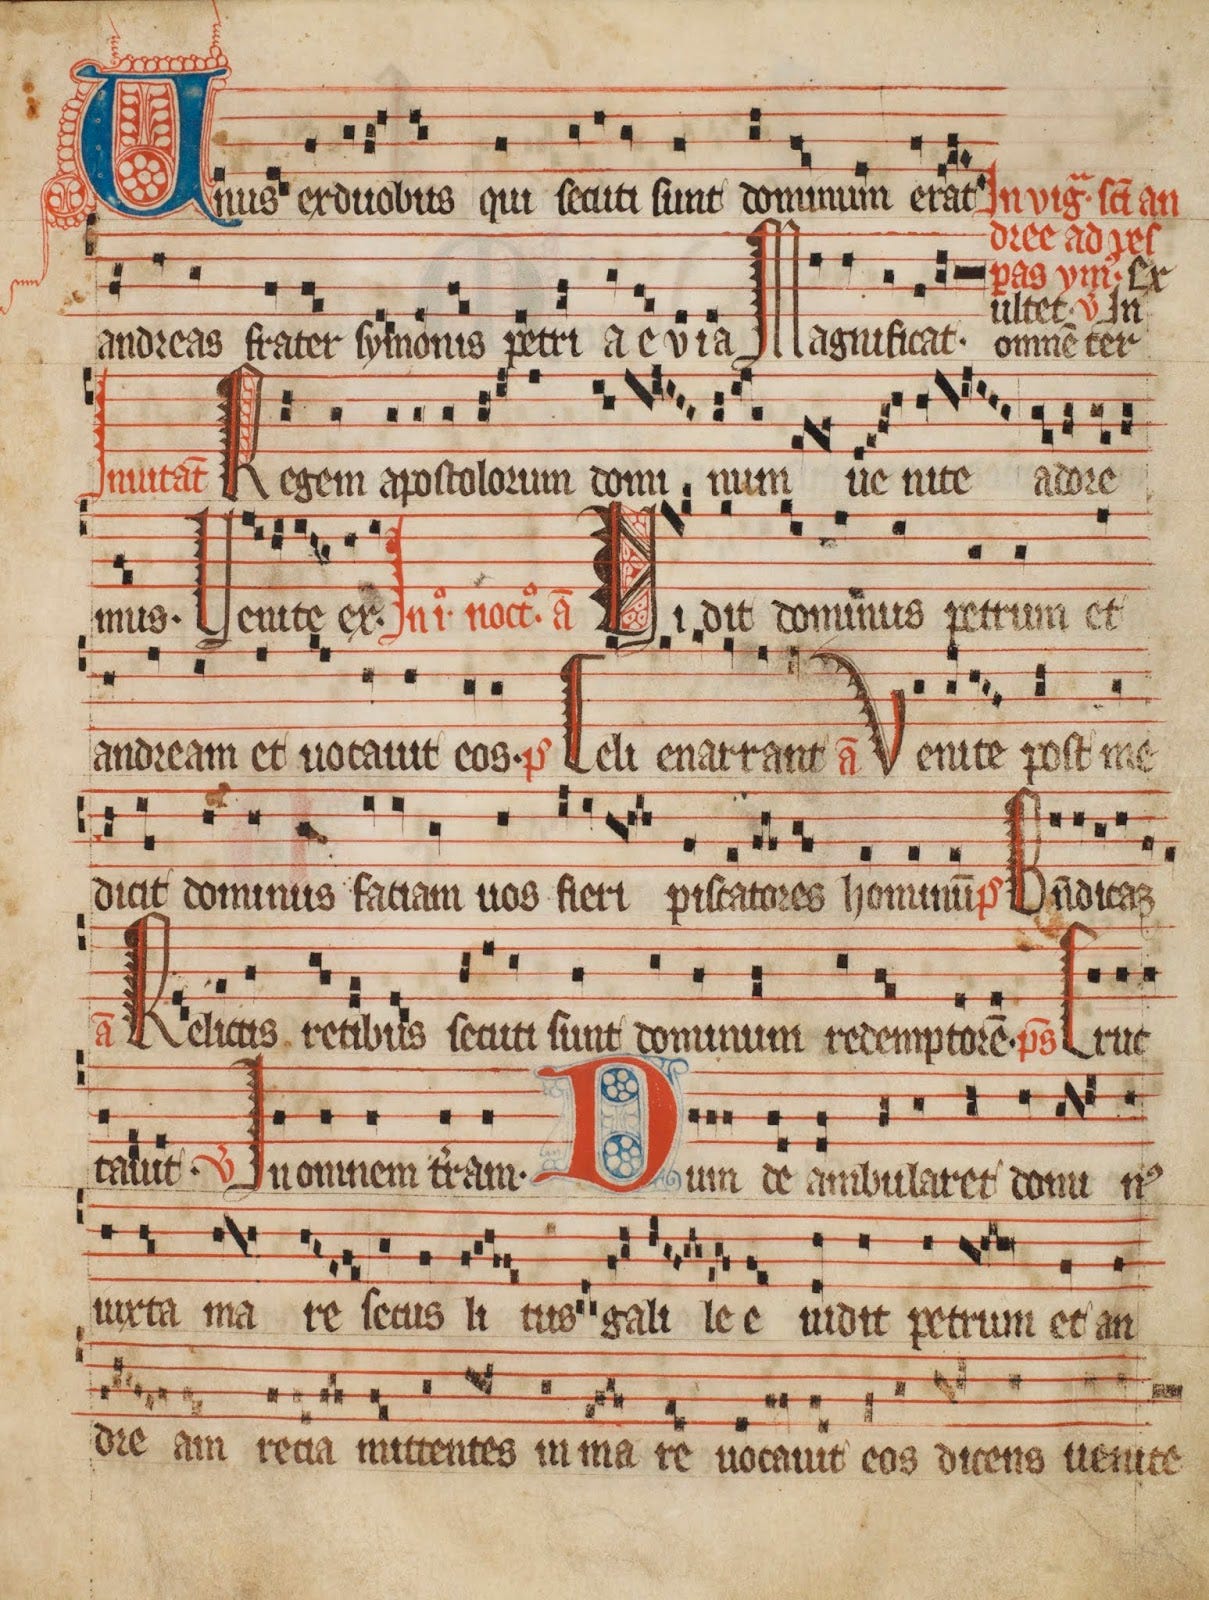 Unus ex duobus qui secuti sunt dominum erat In vigīa. sc̄i an
dree ad ves
pas ym̄. Ex
ultet. v̄ In
andreas frater symonis petri a e v i a Magnificat. omnē ter
Inuitat̄ Regem apostolorum domi num ue nite adore
mus. Uenite ex. In i° noct°. ā Vi dit dominus petrum et
andream et uocauit eos. ps Celi enarrant ā Venite post me
dicit dominus faciam uos fieri piscatores hominū ps Bn̄dicaꝫ
ā Relictis retibus secuti sunt dominum redemptorē. ps̄ Eruc
tauit. v̄ In omnem tr̄am. Dum de ambularet domi nꝰ
iuxta ma re secus li tus gali le e uidit petrum et an
dre am recia mittentes in ma re uocauit eos dicens uenite